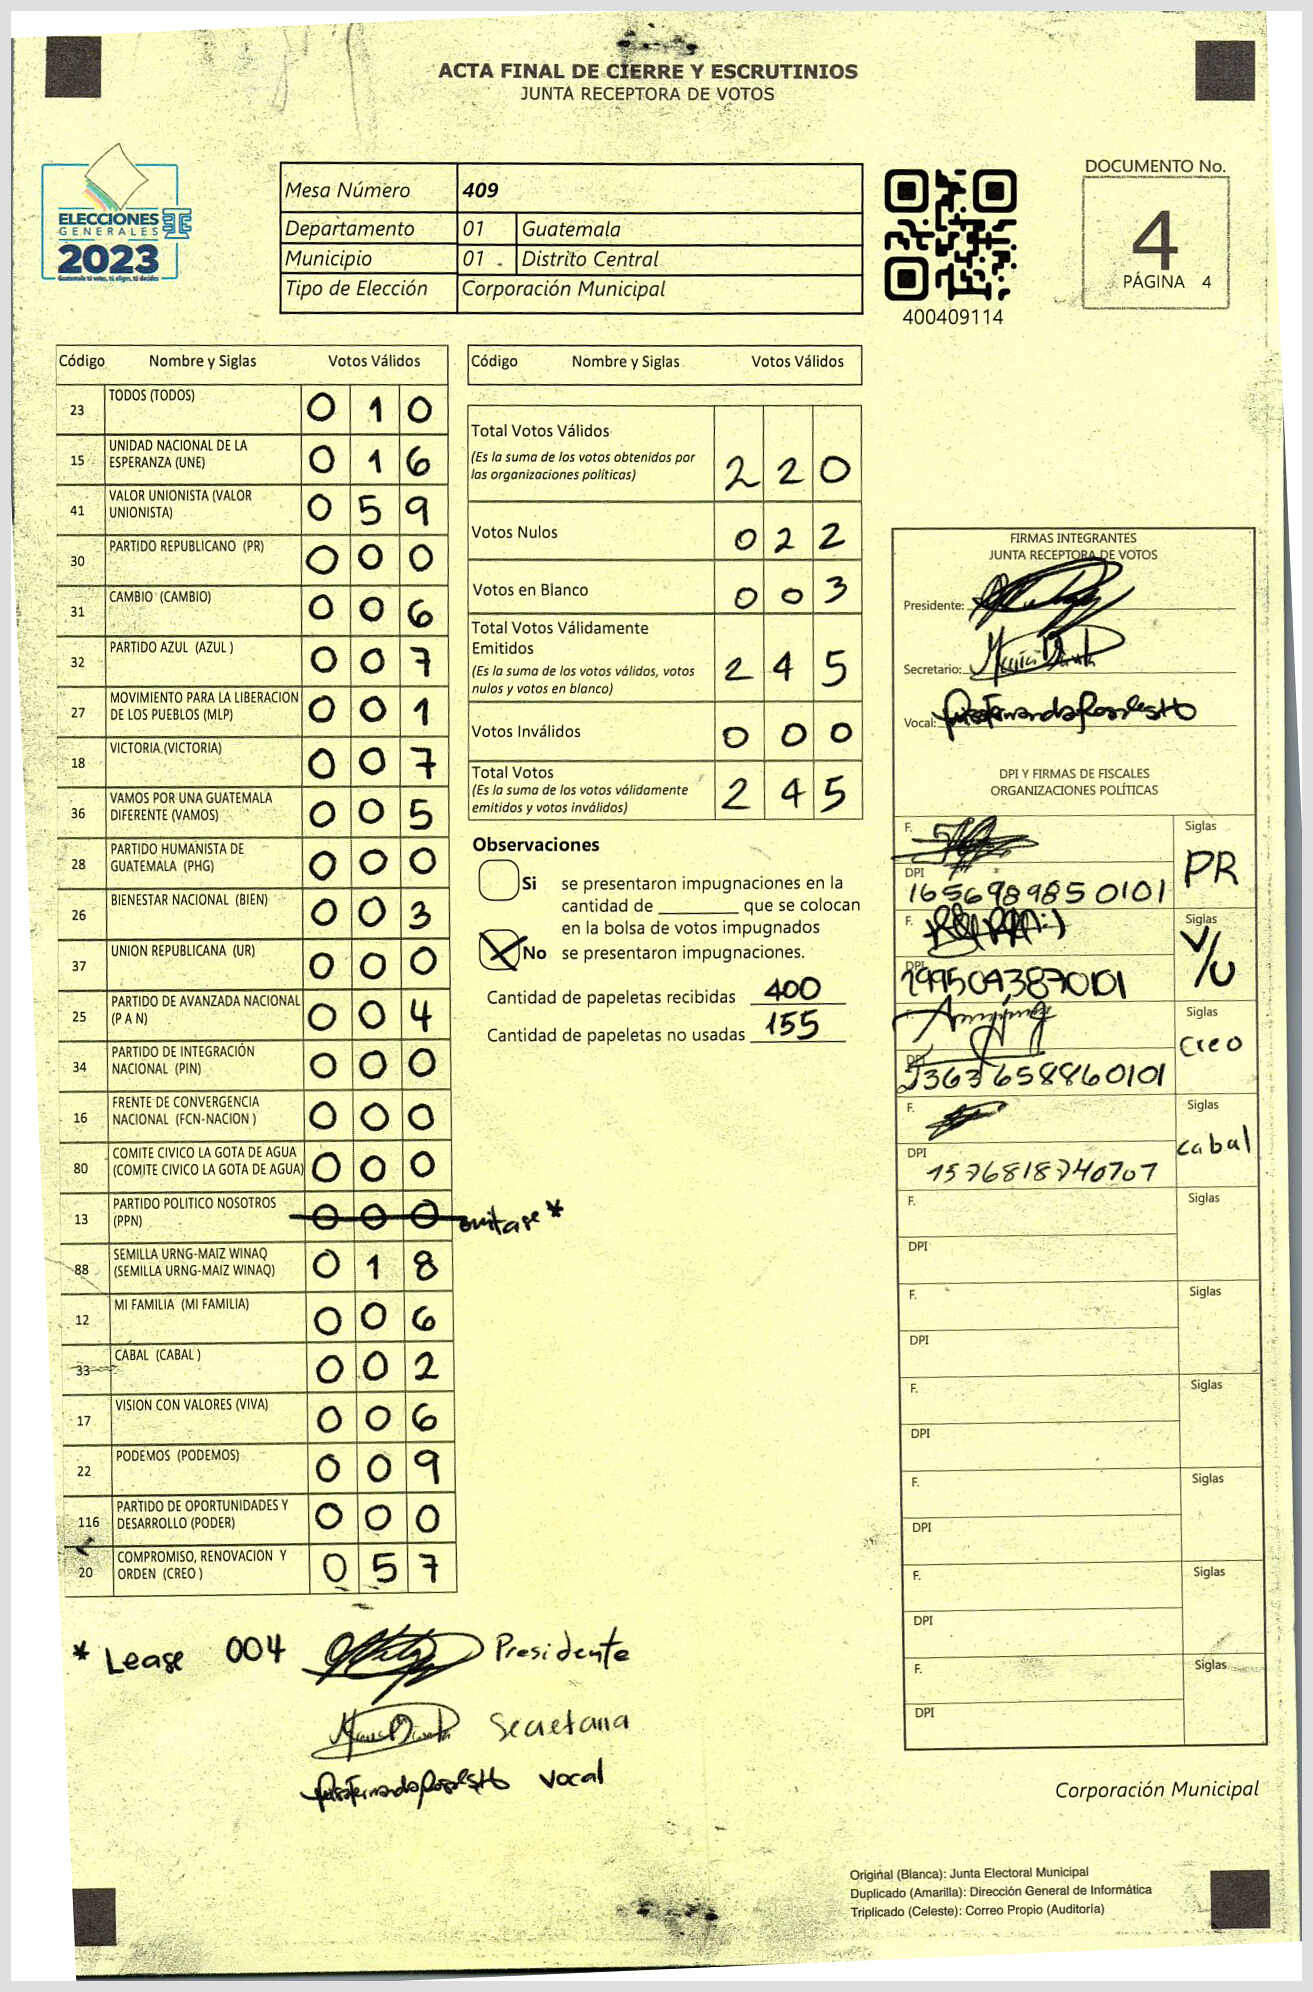 ACTA FINAL DE CIERRE Y ESCRUTINIOS
JUNTA RECEPTORA DE VOTOS
ELECCIONES
GENERALES
2023
Guatemala tú votas, tú eliges, tú decides
Mesa Número 409
Departamento 01 Guatemala
Municipio 01 Distrito Central
Tipo de Elección Corporación Municipal
400409114
DOCUMENTO No.
4
PÁGINA 4
Código Nombre y Siglas Votos Válidos
23 TODOS (TODOS) 0 1 0
15 UNIDAD NACIONAL DE LA
ESPERANZA (UNE) 0 1 6
41 VALOR UNIONISTA (VALOR
UNIONISTA) 0 5 9
30 PARTIDO REPUBLICANO (PR) 0 0 0
31 CAMBIO (CAMBIO) 0 0 6
32 PARTIDO AZUL (AZUL ) 0 0 7
27 MOVIMIENTO PARA LA LIBERACION
DE LOS PUEBLOS (MLP) 0 0 1
18 VICTORIA (VICTORIA) 0 0 7
36 VAMOS POR UNA GUATEMALA
DIFERENTE (VAMOS) 0 0 5
28 PARTIDO HUMANISTA DE
GUATEMALA (PHG) 0 0 0
26 BIENESTAR NACIONAL (BIEN) 0 0 3
37 UNION REPUBLICANA (UR) 0 0 0
25 PARTIDO DE AVANZADA NACIONAL
(P A N) 0 0 4
34 PARTIDO DE INTEGRACIÓN
NACIONAL (PIN) 0 0 0
16 FRENTE DE CONVERGENCIA
NACIONAL (FCN-NACION ) 0 0 0
80 COMITE CIVICO LA GOTA DE AGUA
(COMITE CIVICO LA GOTA DE AGUA) 0 0 0
13 PARTIDO POLITICO NOSOTROS
(PPN) 0 0 0 omitase *
88 SEMILLA URNG-MAIZ WINAQ
(SEMILLA URNG-MAIZ WINAQ) 0 1 8
12 MI FAMILIA (MI FAMILIA) 0 0 6
33 CABAL (CABAL ) 0 0 2
17 VISION CON VALORES (VIVA) 0 0 6
22 PODEMOS (PODEMOS) 0 0 9
116 PARTIDO DE OPORTUNIDADES Y
DESARROLLO (PODER) 0 0 0
20 COMPROMISO, RENOVACION Y
ORDEN (CREO ) 0 5 7
Código Nombre y Siglas Votos Válidos
Total Votos Válidos
(Es la suma de los votos obtenidos por
las organizaciones políticas) 2 2 0
Votos Nulos 0 2 2
Votos en Blanco 0 0 3
Total Votos Válidamente
Emitidos
(Es la suma de los votos válidos, votos
nulos y votos en blanco) 2 4 5
Votos Inválidos 0 0 0
Total Votos
(Es la suma de los votos válidamente
emitidos y votos inválidos) 2 4 5
Observaciones
Si se presentaron impugnaciones en la
cantidad de ________ que se colocan
en la bolsa de votos impugnados
No se presentaron impugnaciones.
Cantidad de papeletas recibidas 400
Cantidad de papeletas no usadas 155
FIRMAS INTEGRANTES
JUNTA RECEPTORA DE VOTOS
Presidente:
Secretario:
Vocal:
DPI Y FIRMAS DE FISCALES
ORGANIZACIONES POLÍTICAS
F. Siglas
DPI PR
1656989850101
F. Siglas
DPI V/U
2995043870101
F. Siglas
DPI Creo
2363658860101
F. Siglas
DPI cabal
1576818740707
F. Siglas
DPI
F. Siglas
DPI
F. Siglas
DPI
F. Siglas
DPI
F. Siglas
DPI
F. Siglas
DPI
* Lease 004 Presidente
Secretaria
Vocal
Corporación Municipal
Original (Blanca): Junta Electoral Municipal
Duplicado (Amarilla): Dirección General de Informática
Triplicado (Celeste): Correo Propio (Auditoría)